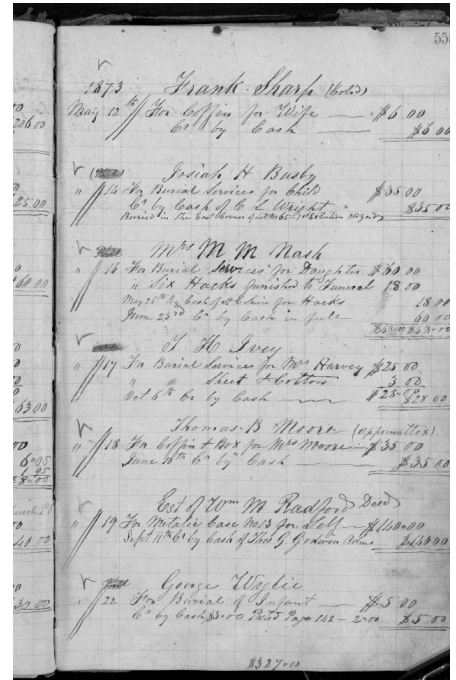 555
1873 Frank Sharp (Cold)
May 12th For Coffin for Wife $6 00
Cr by Cash $6 00
Josiah H Busby
" 14 For Burial Services for Child $35 00
Cr by Cash of C L Wright $35 00
Buried in the East Corner of
Mrs M M Nash
" 16 For Burial Services for Daughter $60 00
" Six Hacks furnished to Funeral 18 00
May 28th By Cash for Hacks 18 00
June 23rd Cr by Cash in full 60 00
$78 00 $78 00
T H Ivey
" 17 For Burial Services for Mrs Harvey $25 00
" " Sheet & Cotton 3 00
Oct 6th Cr by Cash $28 00 $28 00
Thomas B Moore (Appomattox)
" 18 For Coffin & Box for Mrs Moore $35 00
June 16th Cr by Cash $35 00
Est of Wm M Radford Decd
" 19 For Metalic Case No 13 for Self $140 00
Sept 11th Cr by Cash of Thos G Godwin Admr $140 00
George Wylie
" 22 For Burial of Infant $5 00
Cr by Cash $3 00 Posted Page 142 - 2 00 $5 00
$327 00
206 00
25 00
60 00
63 00
6 05
1 95
8 00
40 00
30 00